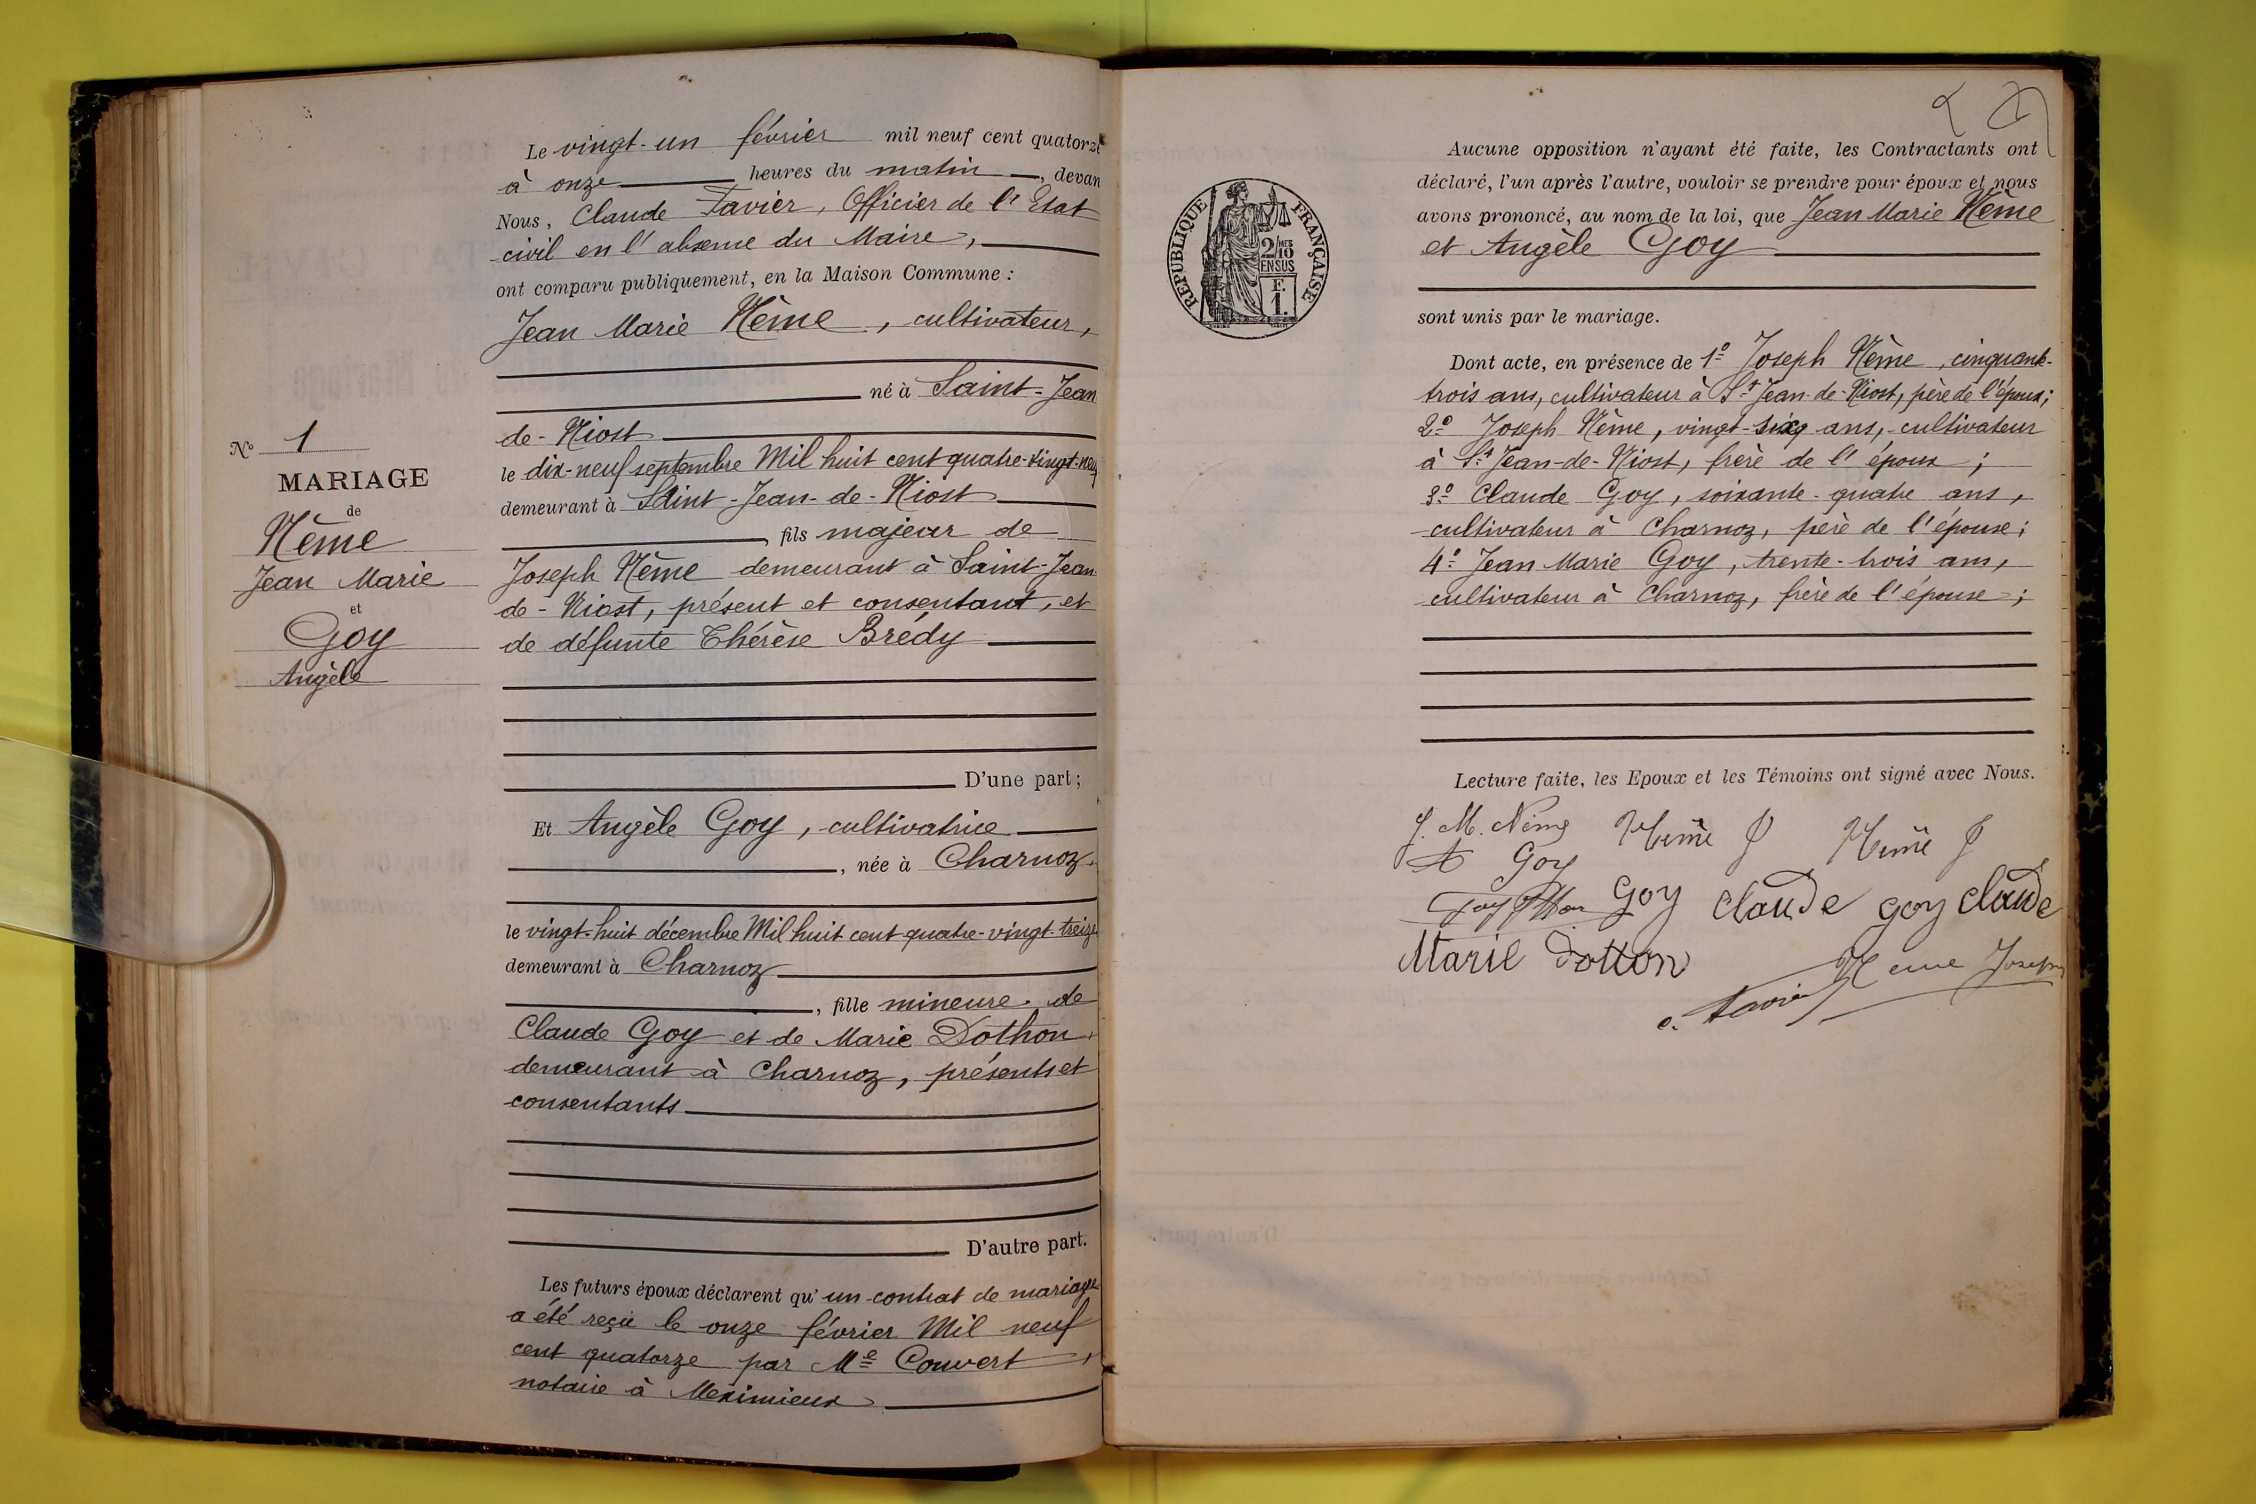 N° 1
MARIAGE
de
Nême
Jean Marie
et
Goy
Angèle
Le vingt-un février mil neuf cent quatorze
à onze heures du matin, devan
Nous, Claude Favier, Officier de l'Etat
civil en l'absence du Maire,
ont comparu publiquement, en la Maison Commune :
Jean Marie Nême, cultivateur,
né à Saint-Jean
de-Niost
le dix-neuf septembre Mil huit cent quatre-vingt-neuf
demeurant à Saint-Jean-de-Niost
, fils majeur de
Joseph Nême demeurant à Saint-Jean
de-Niost, présent et consentant, et
de défunte Thérèse Brédy
D'une part ;
Et Angèle Goy, cultivatrice
, née à Charnoz
le vingt-huit décembre Mil huit cent quatre-vingt-treize
demeurant à Charnoz
, fille mineure de
Claude Goy et de Marie Dothon,
demeurant à Charnoz, présents et
consentants
D'autre part.
Les futurs époux déclarent qu'un contrat de mariage
a été reçu le onze février Mil neuf
cent quatorze par Me Couvert,
notaire à Meximieux
RÉPUBLIQUE FRANÇAISE
2/10MES
EN SUS
F.
1.
Aucune opposition n'ayant été faite, les Contractants ont
déclaré, l'un après l'autre, vouloir se prendre pour époux et nous
avons prononcé, au nom de la loi, que Jean Marie Nême
et Angèle Goy
sont unis par le mariage.
Dont acte, en présence de 1° Joseph Nême, cinquante-
trois ans, cultivateur à St Jean-de-Niost, père de l'époux ;
2° Joseph Nême, vingt- ans, cultivateur
à St Jean-de-Niost, frère de l'époux ;
3° Claude Goy, soixante-quatre ans,
cultivateur à Charnoz, père de l'épouse ;
4° Jean Marie Goy, trente-trois ans,
cultivateur à Charnoz, frère de l'épouse ;
Lecture faite, les Epoux et les Témoins ont signé avec Nous.
J. M. Nême Nême J Nême J
A Goy
Goy Goy Claude Goy Claude
Marie Dotton
Neme Joseph
c. Favier